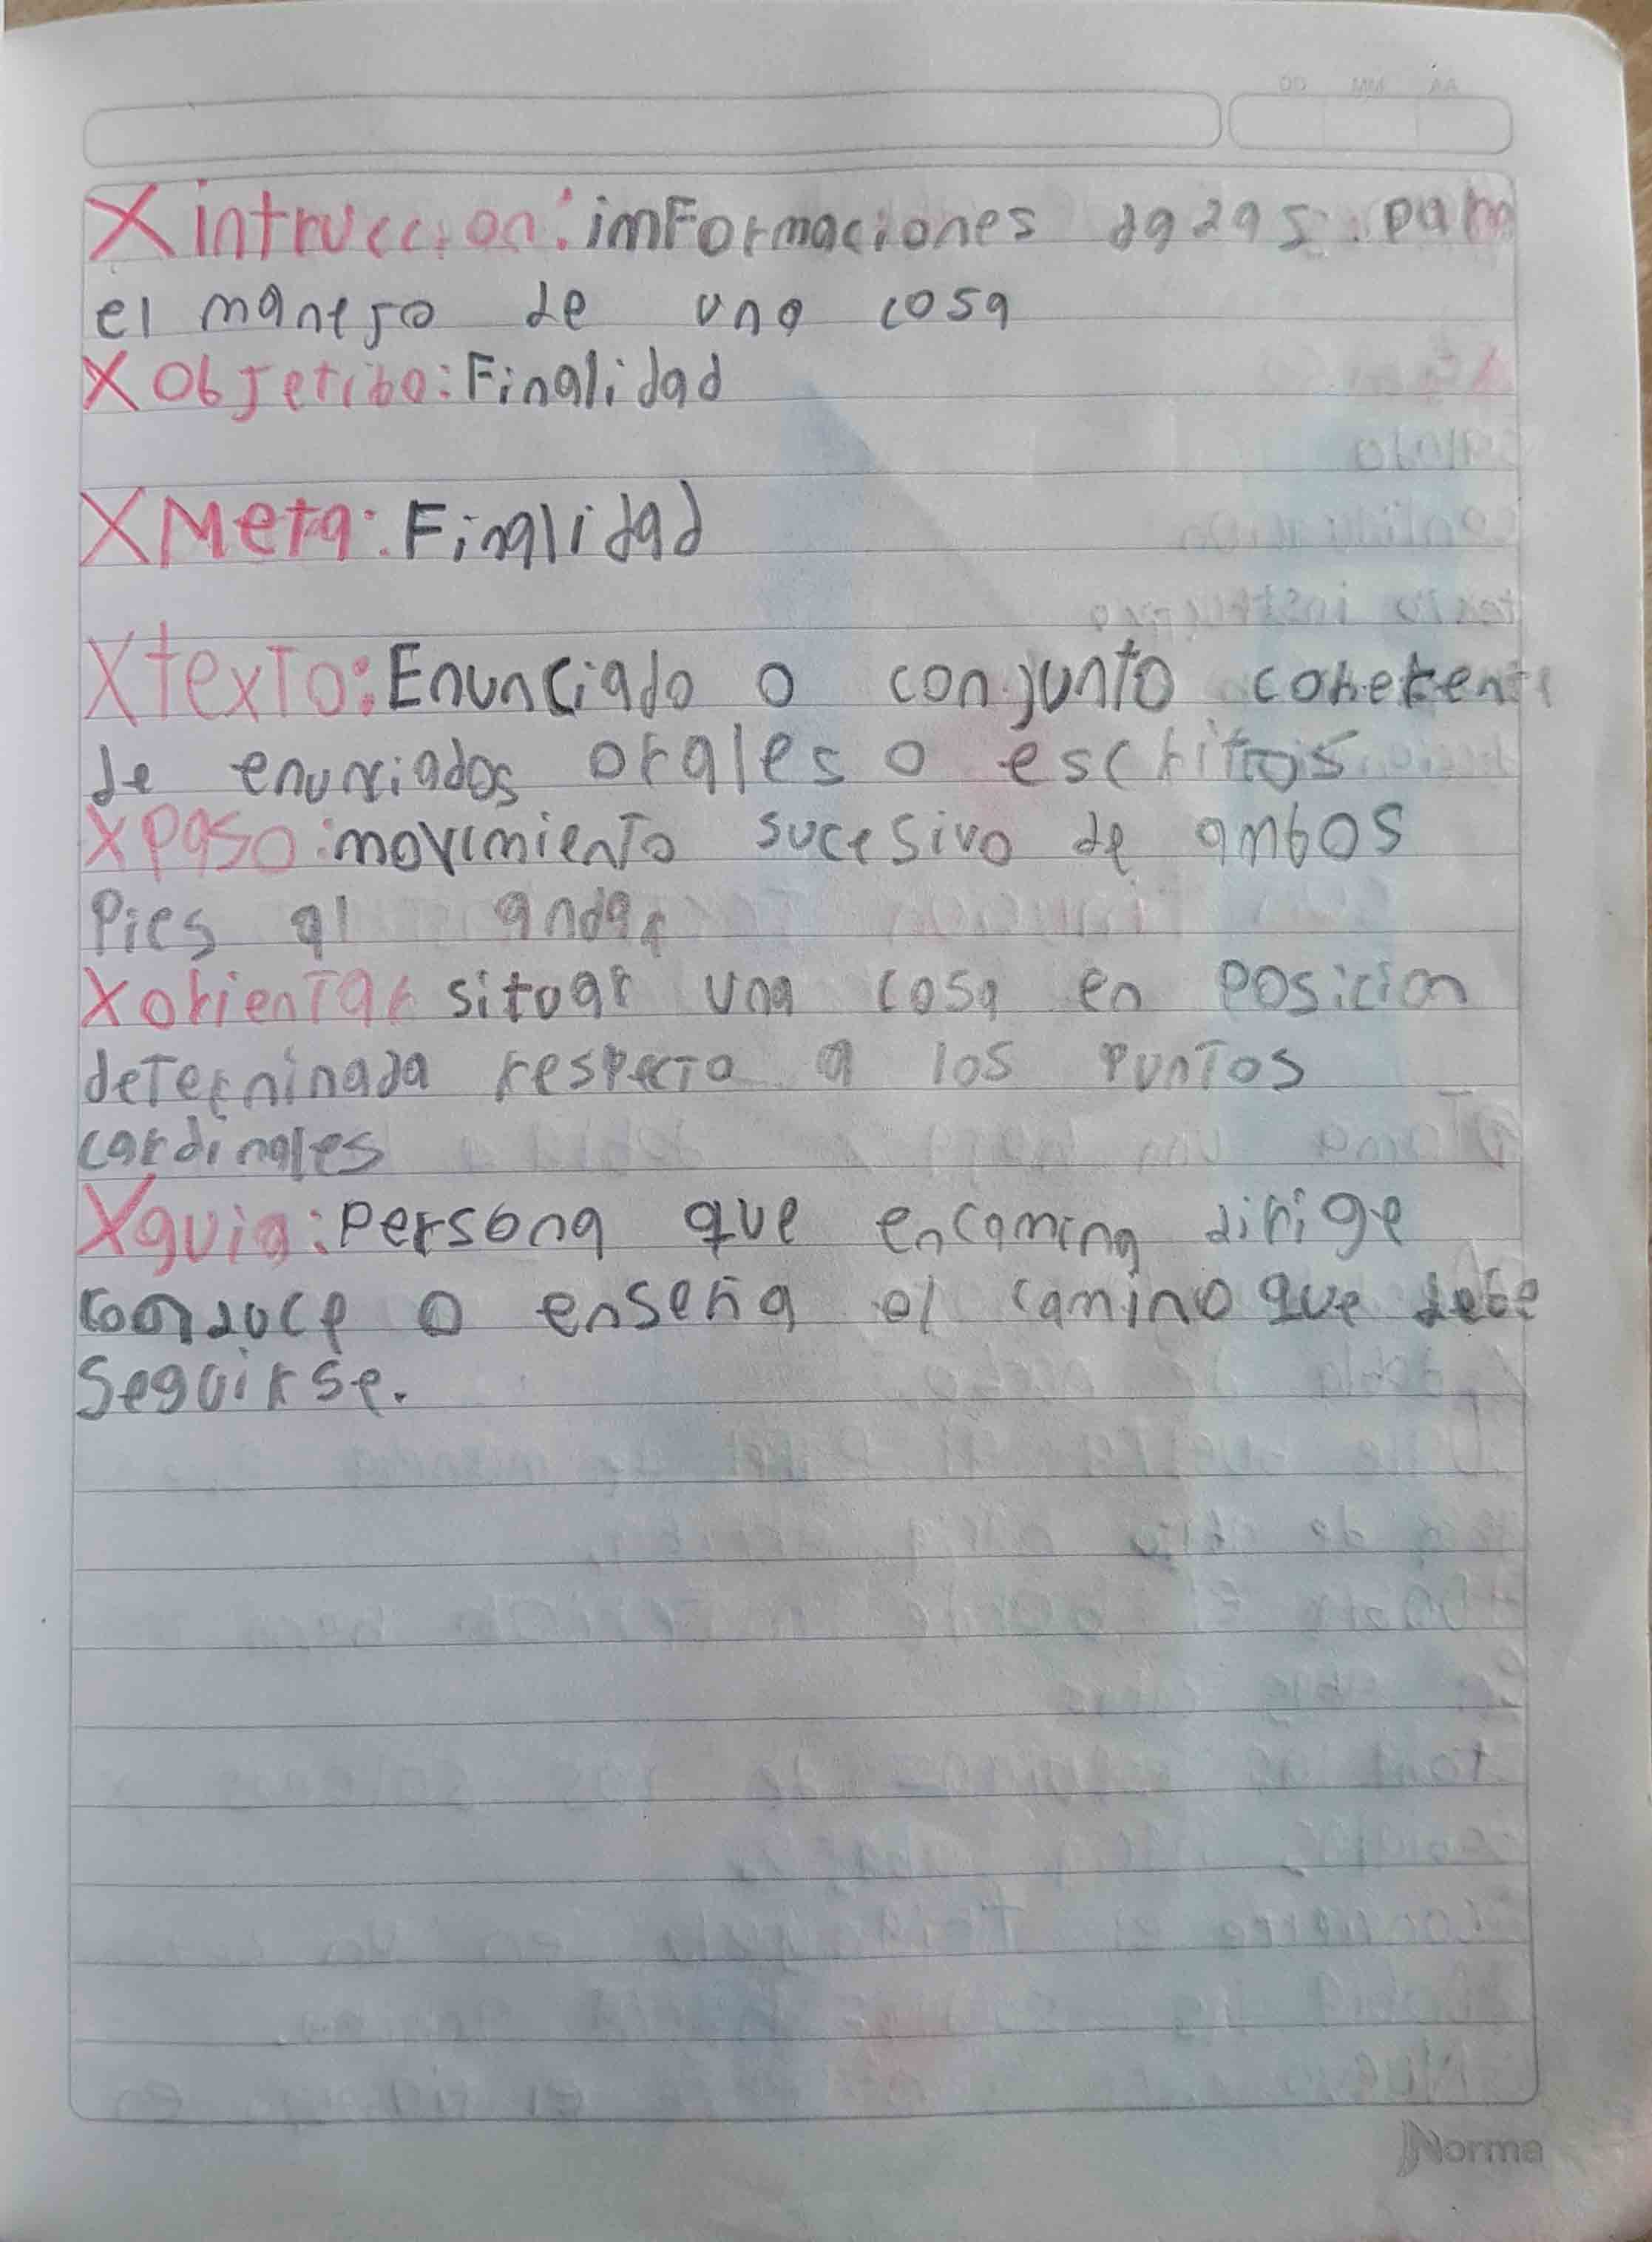 X intruccion: imFormaciones dadas para
el manejo de una cosa
X Objetibo: Finalidad
X Meta: Finalidad
X texto: Enunciado o conjunto coherente
de enunciados orales o escritos
X paso: movimiento sucesivo de ambos
Pies al andar
X orientar situar una cosa en posicion
determinada respecto a los puntos
cardinales
X guia: persona que encamina dirige
conduce o enseña el camino que debe
seguirse.
Norma